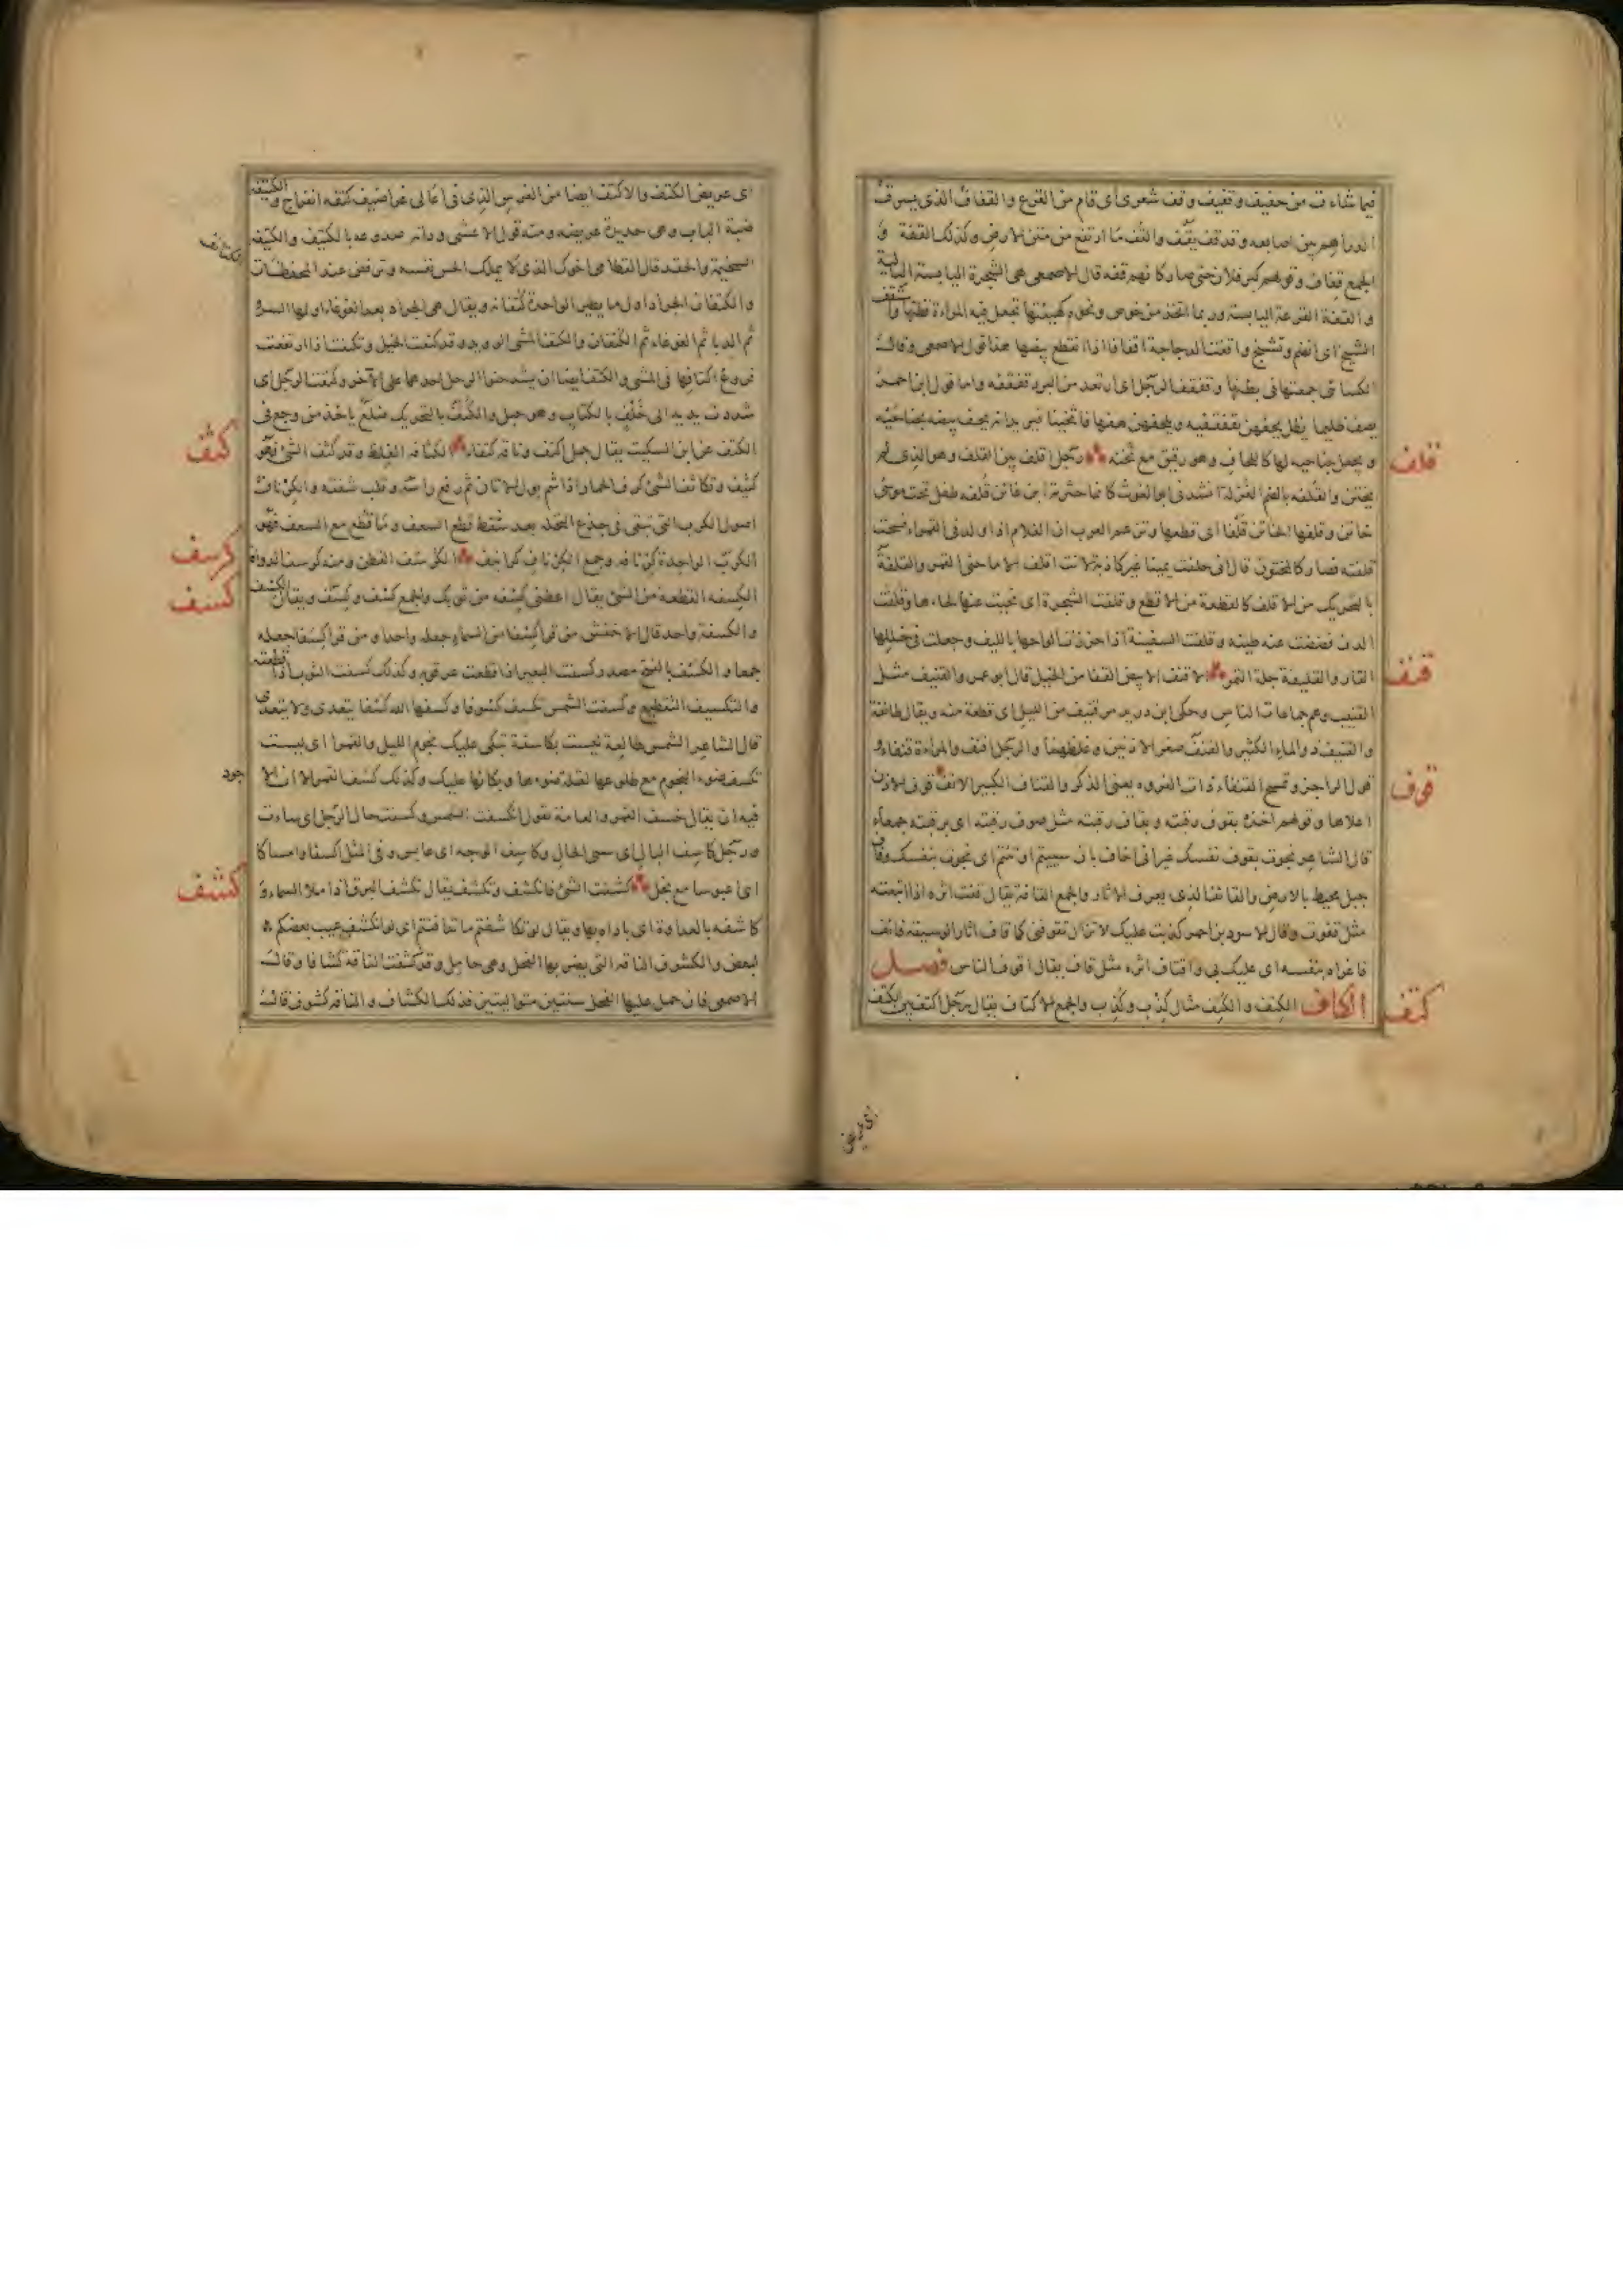 فيما شاءت من حفيف وقفيف وقف شعرى أى قام من الفزع والقفاف الذى يسرق
الدراهم بين اصابعه وقد قف يقف والقف ما ارتفع من متن الارض وكذلك القفة و
الجمع قفاف وقولهم كبر فلان حتى صار كانه قفه قال الاصمعى هى الشجرة اليابسة البالية
و القفة القرعة اليابسة وربما اتخذ من خوص ونحوه كهيئتها تجعل فيه المراءة قطنها واستقف
الشيخ اى انضم وتشنج واقفت الدجاجة اقفافا اذا انقطع بيضها هذا قول الاصمعى وقال
الكسائى جمعتها فى بطنها وتقفقف الرجل اى ارتعد من البرد تقفقفه واما قول ابن احمر
يصف ظليما يظل يحفهن بقفقفيه ويلحفهن هفهافا ثخينا فيريد انه يحف بيضه بجناحيه
و يجعل جناحيه لها كاللحاف وهو رقيق مع ثخنه رجل اقلف بين القلف وهو الذى لم
قلف
يختتن والقلفه بالضم الغرلة انشدنى ابو الغوث كانما حثرمة ابن غابن قلفه طفل تحت موسى
خاتن وقلفها الخاتن قلفا اى قطعها وتزعم العرب ان الغلام اذا ولد فى القمراء فسحت
قلفته فصار كالمختون قال انى حلفت يمينا غير كاذبة لانت اقلف الا ما جنى القمر والقلفة
بالتحريك من الاقلف كالقطعة من الاقطع وقلفت الشجرة اى نحيت عنها لحاءها وقلفت
الدن فضضت عنه طينه وقلفت السفينة اذا خرزت الواحها بالليف وجعلت فى خللها
القار والقليفة جلة التمر الاقنف الابيض القفا من الخيل قال ابو عمرو القنيف مثل
قنف
القنيب وهم جماعات الناس وحكى ابن دريد مر قنيف من الليل اى قطعة منه ويقال طائفة
والقنف صغر الاذنين وغلظهما والرجل اقنف والمراءة قنفاء و
قول الراجز وتمسح القنفاء ذات الفروه يعنى الذكر والقناف الكبير الانف قوف الاذن
قوف
اعلاها وقولهم اخذه بقوف رقبته وبقاف رقبته مثل صوف رقبته اى برقبته جمعاء
قال الشاعر نجوت بقوف نفسك غير انى اخاف بان سييتم او تئم اى نجوت بنفسك وقاف
جبل محيط بالارض والقائف الذى يعرف الاثار والجمع القافة يقال قفت اثره اذا اتبعته
مثل قفوت وقال الاسود بن احمر كذبت عليك لا تزال تقوفنى كما قاف اثار الوسيقة قائف
فاغراه بنفسه اى عليك بى واقتاف اثره مثل قاف يقال اقوف الناس فصل
الكاف الكتف والكتف مثال كذب وكذب والجمع الاكتاف يقال رجل اكتف بين الكتف
كتف
اى عريض
اى عريض الكتف والاكتف ايضا من الفرس الذى فى اعالى غراضيف كتفه انفراج والكتيفة
ضبة الباب وهى حديدة عريضه ومنه قول الاعشى ودانى صدوعه بالكتيف والكتيفه
السخيمة والحقد قال القطامى اخوك الذى لا يملك الحس نفسه وترفض عند المحفظات
الكتائف
والكتفان الجراد اول ما يطير الواحدة كتفانة ويقال هى الجراد بعد الغوغاء اولها السرو
ثم الدبا ثم الغوغاء ثم الكتفان والكتف المشى الرويد وقد كتفت الخيل وتكتفت اذا ارتفعت
فروع اكتافها فى المشى والكتف ايضا ان يشد حنوا الرحل احدهما على الآخر وكتفت الرجل اى
شددت يديه الى خلف بالكتاف وهو حبل والكتف بالتحريك ضلع ياخذ من وجع فى
الكتف عن ابن السكيت يقال جمل اكتف وناقة كتفاء الكثافة الغلظ وقد كثف الشئ فهو
كثف
كثيف وتكاثف الشئ كرف الحمار اذا شم بول الاتان ثم رفع راسه وقلب شفته والكرناف
اصول الكرب التى تبقى فى جذع النخلة بعد قطع السعف وما قطع مع السعف فهو
الكرب الواحدة كرنافه وجمع الكرناف كرانيف الكرسف القطن ومنه كرسف الدواة
كرسف
الكسفه القطعة من الشئ يقال اعطنى كسفه من ثوبك والجمع كسف وكسف ويقال الكسف
كسف
والكسفة واحد قال الاخفش من قرأ كسفا من السماء جعله واحدا ومن قرأ كسفا جعله
جمعا والكسف بالفتح مصدر كسفت البعير اذا قطعت عرقوبه وكذلك كسفت الثوب اذا قطعته
والتكسيف التقطيع وكسفت الشمس تكسف كسوفا وكسفها الله كسفا يتعدى ولا يتعدى
قال الشاعر الشمس طالعة ليست بكاسفة تبكى عليك نجوم الليل والقمرا اى ليست
تكسف ضوء النجوم مع طلوعها لقلة ضوءها وبكائها عليك وكذلك كسف القمر الا ان الا
جود
فيه ان يقال خسف القمر والعامة تقول انكسفت الشمس وكسفت حال الرجل اى ساءت
ورجل كاسف البال اى سئ الحال وكاسف الوجه اى عابس وفى المثل أكسفا وامساكا
اى أعبوسا مع بخل كشفت الشئ فانكشف وتكشف يقال تكشف البرق اذا ملا السماء و
كشف
كاشفه بالعداوة اى باداه بها ويقال لو تكاشفتم ما تدافنتم اى لو انكشف عيب بعضكم
لبعض والكشوف الناقه التى يضربها الفحل وهى حامل وقد كشفت الناقة كشافا وقال
الاصمعى فان حمل عليها الفحل سنتين متواليتين فذلك الكشاف والناقة كشوف قال